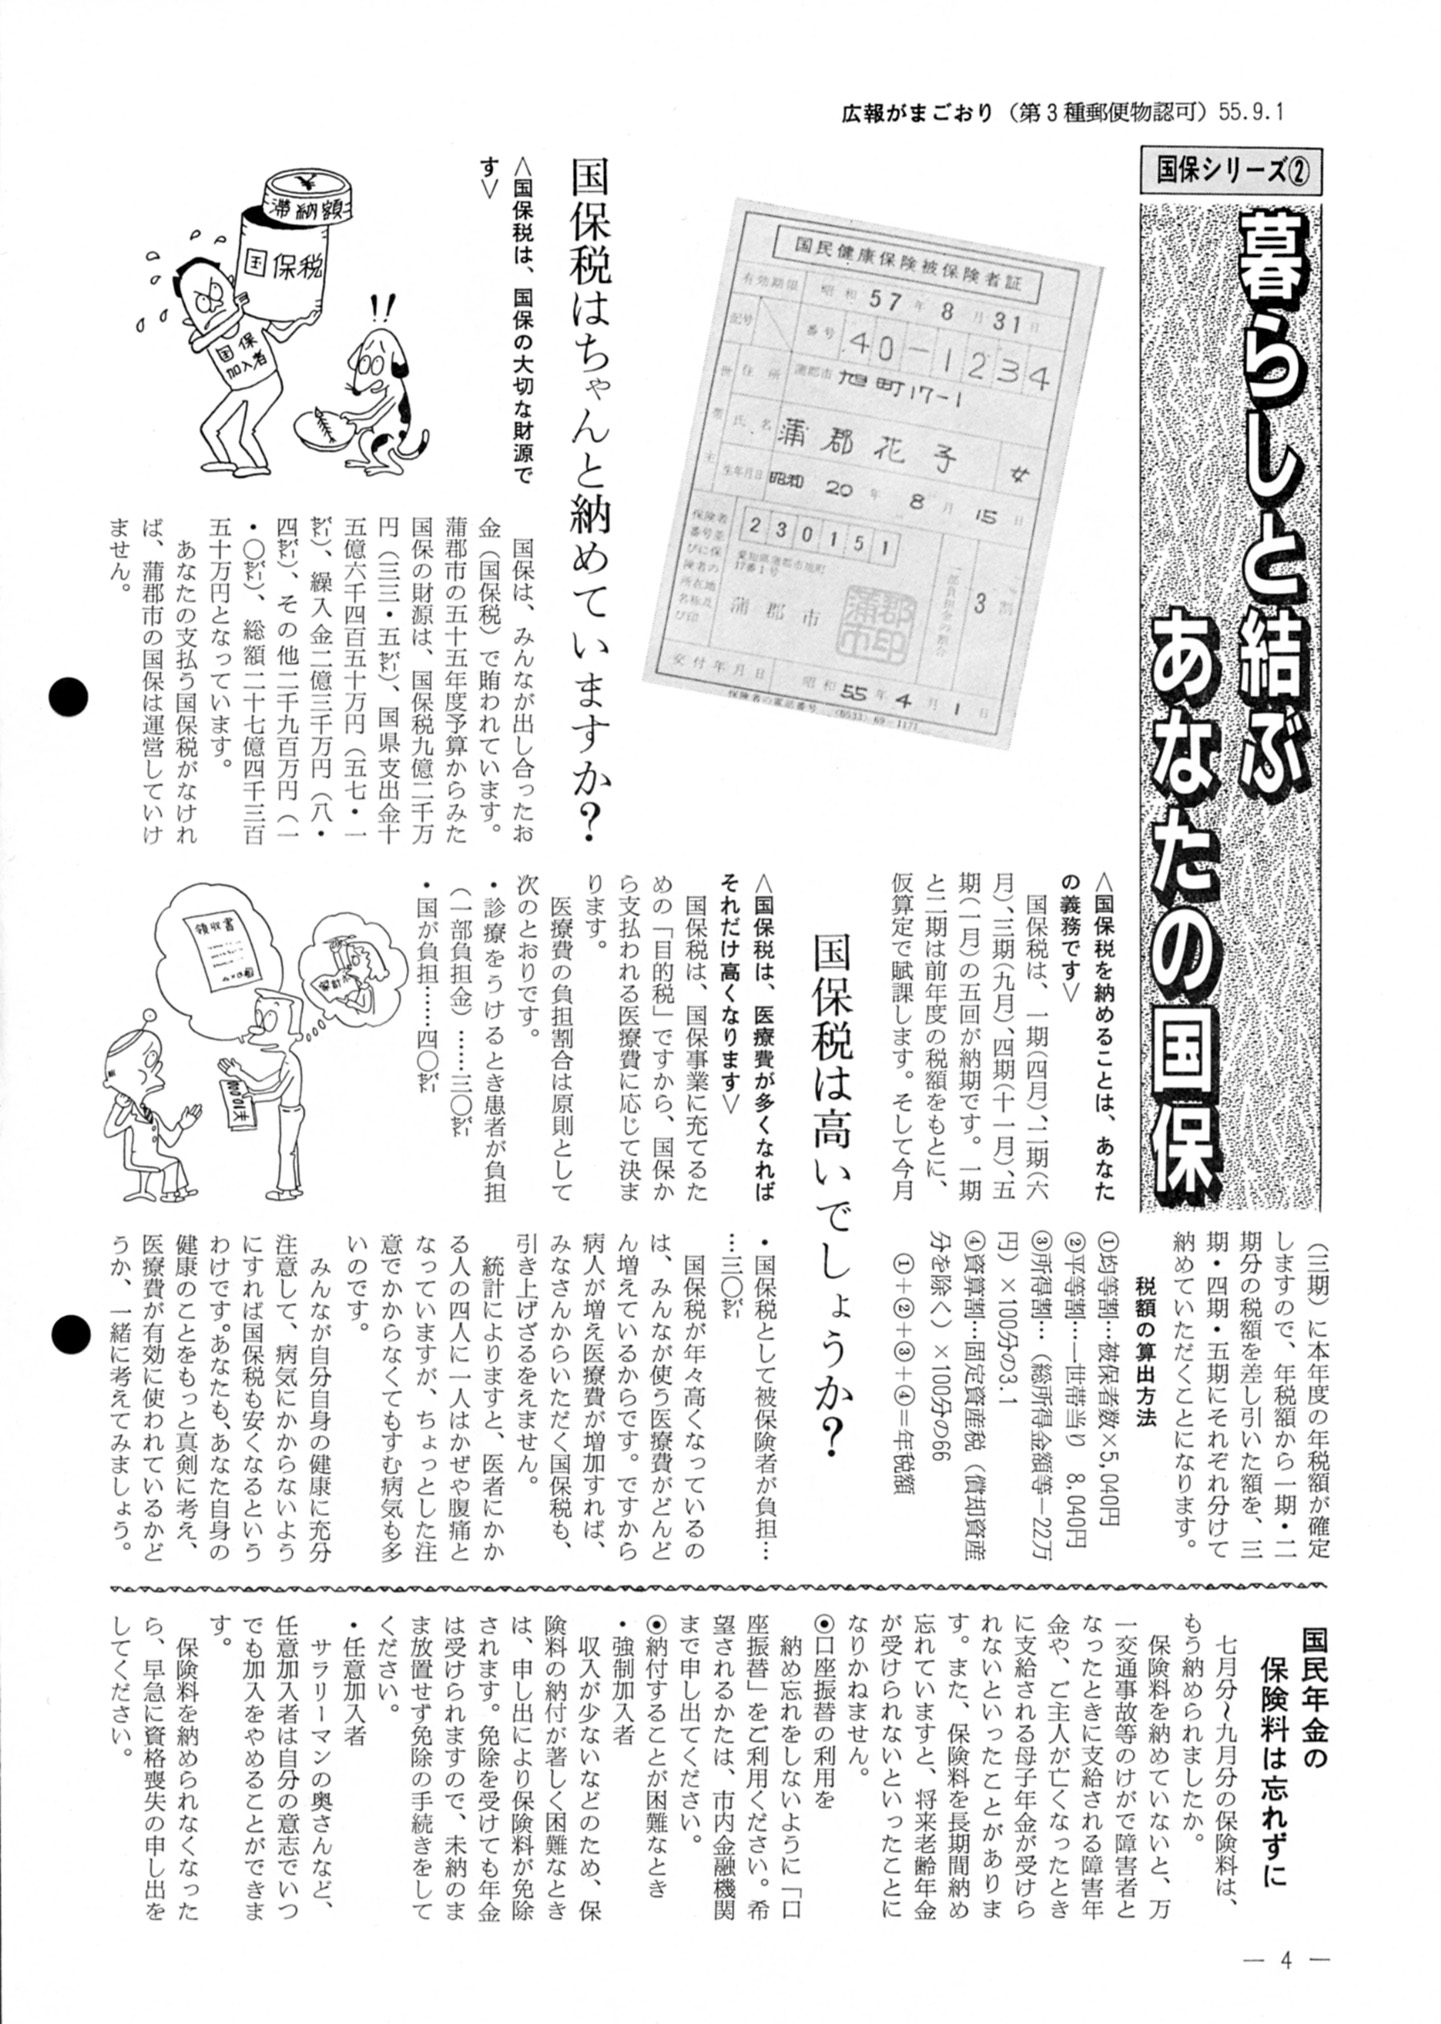 広報がまごおり（第3種郵便物認可）55.9.1
国保シリーズ②
暮らしと結ぶ
あなたの国保
国民健康保険被保険者証
有効期限 昭和57年8月31日
記号
番号 40-1234
世帯主
住所 蒲郡市 旭町17-1
氏名 蒲郡花子 女
生年月日 昭和20年8月15日
保険者
番号並
びに保
険者の
所在地
名称及
び印
230151
愛知県蒲郡市旭町
17番1号
蒲郡市
蒲郡市印
一部負担金の割合
3割
交付年月日 昭和55年4月1日
保険者の電話番号 (0533) 69-1171
国保税はちゃんと納めていますか?
＜国保税は、国保の大切な財源で
す＞
¥
滞納額
国保税
国保
加入者
!!
国保は、みんなが出し合ったお
金（国保税）で賄われています。
蒲郡市の五十五年度予算からみた
国保の財源は、国保税九億二千万
円（三三・五㌫）、国県支出金十
五億六千四百五十万円（五七・一
㌫）、繰入金二億三千万円（八・
四㌫）、その他二千九百万円（一
・〇㌫）、総額二十七億四千三百
五十万円となっています。
あなたの支払う国保税がなけれ
ば、蒲郡市の国保は運営していけ
ません。
＜国保税を納めることは、あなた
の義務です＞
国保税は、一期(四月)、二期(六
月)、三期(九月)、四期(十一月)、五
期(一月)の五回が納期です。一期
と二期は前年度の税額をもとに、
仮算定で賦課します。そして今月
（三期）に本年度の年税額が確定
しますので、年税額から一期・二
期分の税額を差し引いた額を、三
期・四期・五期にそれぞれ分けて
納めていただくことになります。
税額の算出方法
①均等割…被保者数×5,040円
②平等割…一世帯当り　8,040円
③所得割…（総所得金額等−22万
円）×100分の3.1
④資算割…固定資産税（償却資産
分を除く）×100分の66
①＋②＋③＋④＝年税額
国保税は高いでしょうか?
＜国保税は、医療費が多くなれば
それだけ高くなります＞
国保税は、国保事業に充てるた
めの「目的税」ですから、国保か
ら支払われる医療費に応じて決ま
ります。
医療費の負担割合は原則として
次のとおりです。
・診療をうけるとき患者が負担
（一部負担金）……三〇㌫
・国が負担……四〇㌫
領収書
・国保税として被保険者が負担…
…三〇㌫
国保税が年々高くなっているの
は、みんなが使う医療費がどんど
ん増えているからです。ですから
病人が増え医療費が増加すれば、
みなさんからいただく国保税も、
引き上げざるをえません。
統計によりますと、医者にかか
る人の四人に一人はかぜや腹痛と
なっていますが、ちょっとした注
意でかからなくてもすむ病気も多
いのです。
みんなが自分自身の健康に充分
注意して、病気にかからないよう
にすれば国保税も安くなるという
わけです。あなたも、あなた自身の
健康のことをもっと真剣に考え、
医療費が有効に使われているかど
うか、一緒に考えてみましょう。
国民年金の
保険料は忘れずに
七月分〜九月分の保険料は、
もう納められましたか。
保険料を納めていないと、万
一交通事故等のけがで障害者と
なったときに支給される障害年
金や、ご主人が亡くなったとき
に支給される母子年金が受けら
れないといったことがありま
す。また、保険料を長期間納め
忘れていますと、将来老齢年金
が受けられないといったことに
なりかねません。
◉口座振替の利用を
納め忘れをしないように「口
座振替」をご利用ください。希
望されるかたは、市内金融機関
まで申し出てください。
◉納付することが困難なとき
・強制加入者
収入が少ないなどのため、保
険料の納付が著しく困難なとき
は、申し出により保険料が免除
されます。免除を受けても年金
は受けられますので、未納のま
ま放置せず免除の手続きをして
ください。
・任意加入者
サラリーマンの奥さんなど、
任意加入者は自分の意志でいつ
でも加入をやめることができま
す。
保険料を納められなくなった
ら、早急に資格喪失の申し出を
してください。
— 4 —